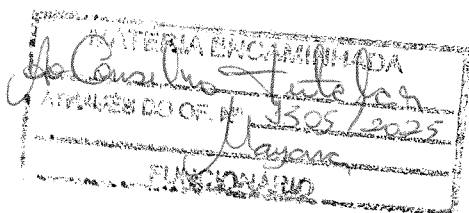 MATÉRIA ENCAMINHADA
Ao Conselho Tutelar
ATRAVÉS DO OF. Nº 3505/2025
Mayara
FUNCIONÁRIO